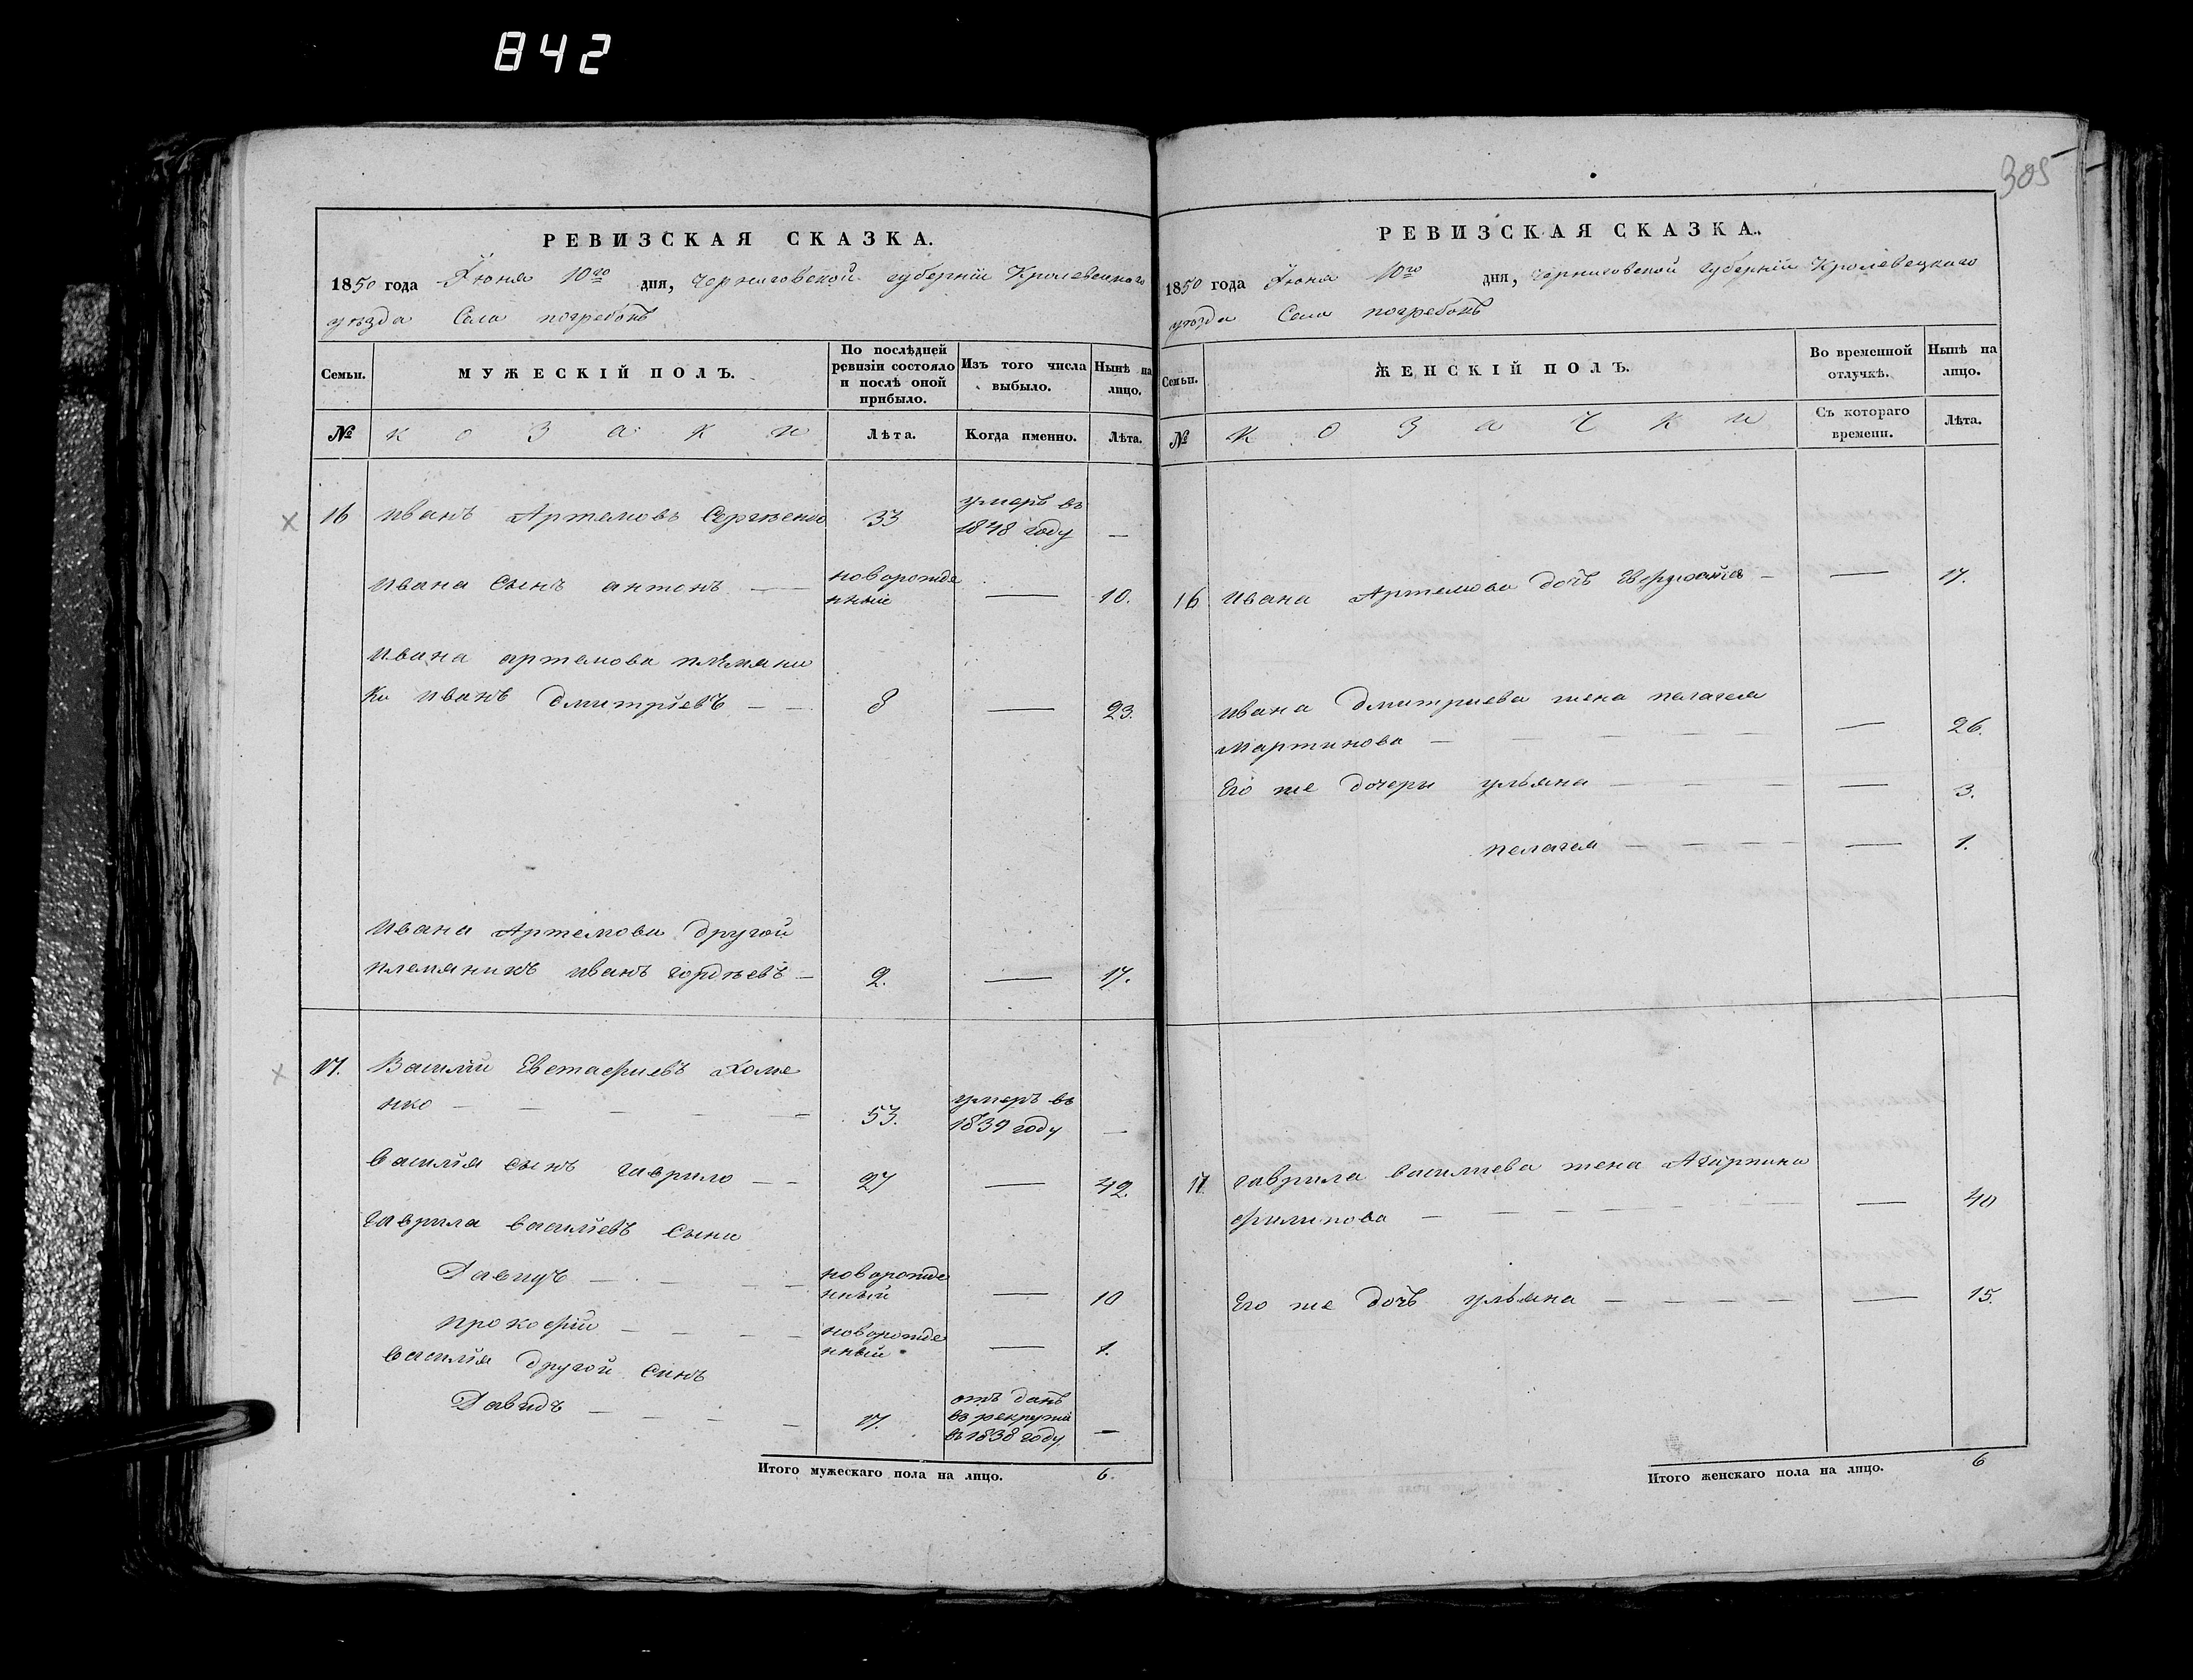 842
305
РЕВИЗСКАЯ СКАЗКА.
1850 года Іюня 10го дня, Черниговской губерніи Кролевецкаго
уѣзда Села погребокъ
Семьи. МУЖЕСКІЙ ПОЛЪ. По послѣдней ревизіи состояло и послѣ оной прибыло. Изъ того числа выбыло. Нынѣ на лицо.
№ козаки Лѣта. Когда именно. Лѣта.
16 Иванъ Артемовъ Сергѣенко 33 умеръ въ 1848 году —
Ивана сынъ антонъ — новорожде нный — 10.
Ивана артемова племяни
ки Иванъ дмитріевъ — — 8 — 23.
Ивана Артемова другой
племяникъ иванъ гордѣевъ — 2. — 17.
17. Василій Евстафиевъ Хоме
нко — 53. умеръ въ 1839 году —
Василія сынъ гаврило — — 27 — 42.
гаврила василіевъ сыни
Давидъ — новорожде нный — 10
прокофій — новорожде нный — 1.
василія другой синъ
Давидъ — 17. отъ данъ въ рекруты въ 1838 году —
Итого мужескаго пола на лицо. 6.
РЕВИЗСКАЯ СКАЗКА.
1850 года Іюня 10го дня, Черниговской губерніи Кролевецкаго
уѣзда Села погребокъ
Семьи. ЖЕНСКІЙ ПОЛЪ. Во временной отлучкѣ. Нынѣ на лицо.
№ козачки Съ котораго времени. Лѣта.
16 Ивана Артемова дочъ — — 17.
Ивана дмитриева жена пелагея
Мартинова — — 26.
Его же дочери ульяна — — 3.
пелагея — — 1.
17 гаврила василиева жена Агарпина
филипова — — 40
Его же дочъ ульяна — — 15.
Итого женскаго пола на лицо. 6